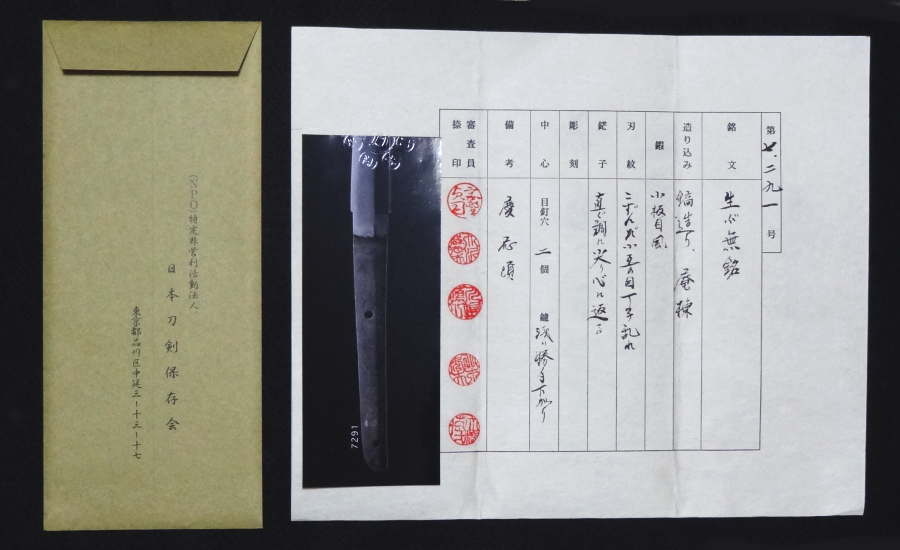 第七、二九一号
銘文 生ぶ無銘
造り込み 鎬造り、庵棟
鍛 小板目風
刃紋 こずんだ小互の目丁子乱れ
鋩子 直ぐ調に尖り心に返る
彫刻
中心 目釘穴 二個 鑢 浅い勝手下がり
備考 慶応頃
審査員捺印
7291
(NPO)特定非営利活動法人
日本刀剣保存会
東京都品川区中延三ー十三ー十七